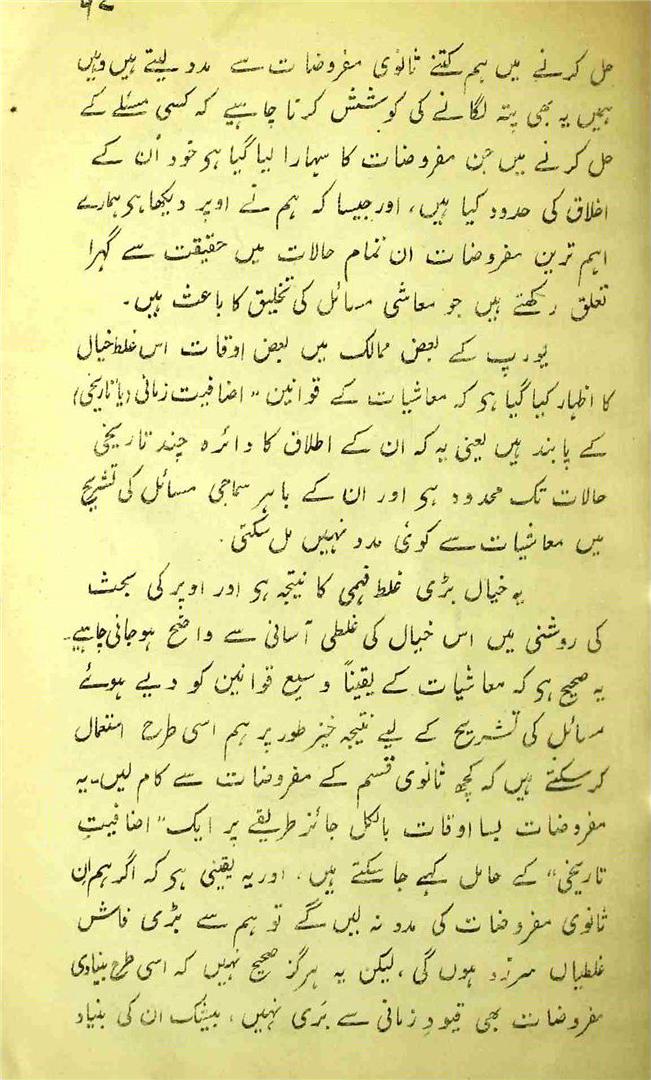 حل کرنے میں ہم کتنے ثانوی مفروضات سے مدد لیتے ہیں وہیں
ہمیں یہ بھی پتہ لگانے کی کوشش کرنا چاہیے کہ کسی مسئلے کے
حل کرنے میں جن مفروضات کا سہارا لیا گیا ہو خود اُن کے
اطلاق کی حدود کیا ہیں، اور جیسا کہ ہم نے اوپر دیکھا ہو ہمارے
اہم ترین مفروضات ان تمام حالات میں حقیقت سے گہرا
تعلق رکھتے ہیں جو معاشی مسائل کی تخلیق کا باعث ہیں۔
یورپ کے بعض ممالک میں بعض اوقات اس غلط خیال
کا اظہار کیا گیا ہو کہ معاشیات کے قوانین "اضافیت زمانی (یا تاریخی)
کے پابند ہیں یعنی یہ کہ ان کے اطلاق کا دائرہ چند تاریخی
حالات تک محدود ہو اور ان کے باہر سماجی مسائل کی تشریح
میں معاشیات سے کوئی مدد نہیں مل سکتی۔
یہ خیال بڑی غلط فہمی کا نتیجہ ہو اور اوپر کی بحث
کی روشنی میں اس خیال کی غلطی آسانی سے واضح ہو جانی چاہیے۔
یہ صحیح ہو کہ معاشیات کے یقیناً وسیع قوانین کو دیے ہوئے
مسائل کی تشریح کے لیے نتیجہ خیز طور پر ہم اسی طرح استعمال
کر سکتے ہیں کہ کچھ ثانوی قسم کے مفروضات سے کام لیں۔ یہ
مفروضات بسا اوقات بالکل جائز طریقے پر ایک "اضافیتِ
تاریخی" کے حامل کہے جا سکتے ہیں، اور یہ یقینی ہو کہ اگر ہم اِن
ثانوی مفروضات کی مدد نہ لیں گے تو ہم سے بڑی فاش
غلطیاں سرزد ہوں گی، لیکن یہ ہرگز صحیح نہیں کہ اسی طرح بنیادی
مفروضات بھی قیودِ زمانی سے بَری نہیں، بیشک ان کی بنیاد